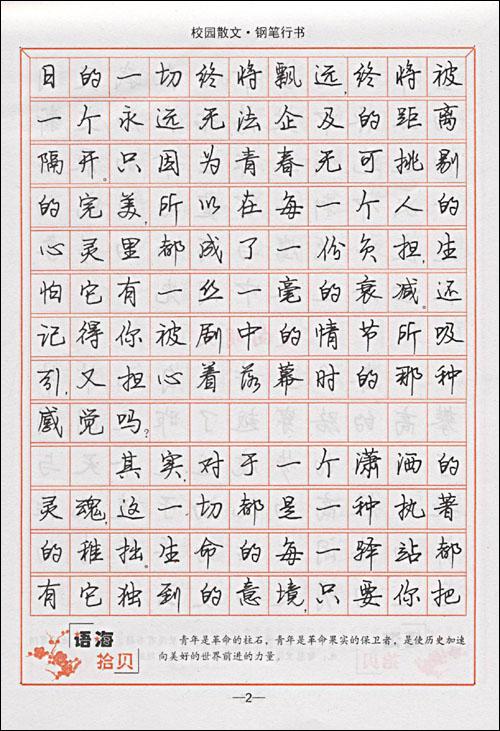 校园散文·钢笔行书
目的一切终将飘远,终将被
一个永远无法企及的距离
隔开。只因为青春无可挑剔
的完美,所以在每一个人的
心灵里都成了一份负担,生
怕它有一丝一毫的衰减。还
记得你被剧中的情节所吸
引,又担心着落幕时的那种
感觉吗?
其实,对于一个潇洒的
灵魂,这一切都是一种执著
的稚拙。生命的每一驿站都
有它独到的意境,只要你把
语海
拾贝
青年是革命的柱石,青年是革命果实的保卫者,是使历史加速
向美好的世界前进的力量
—2—